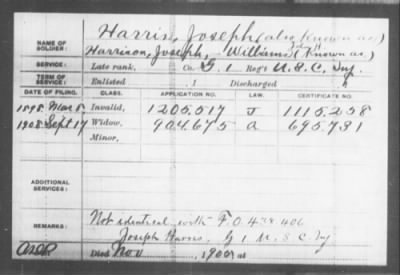 Harris, Joseph (also known as)
NAME OF SOLDIER: Harrison, Joseph, Williams, ( Known as.)
SERVICE: Late rank, Co. G. 1 Reg't U. S. C. Inf.
TERM OF SERVICE: Enlisted , 1 Discharged , 1
DATE OF FILING. CLASS. APPLICATION NO. LAW. CERTIFICATE NO.
1898 Mar 8 Invalid, 1205.517 J 1115.258
1908 Sept 17 Widow, 904.675 a 695.731
Minor,
ADDITIONAL SERVICES:
REMARKS: Not identical with F.O. 438.406
Joseph Harris. G 1 U.S.C. Inf
Died Nov , 1900, at